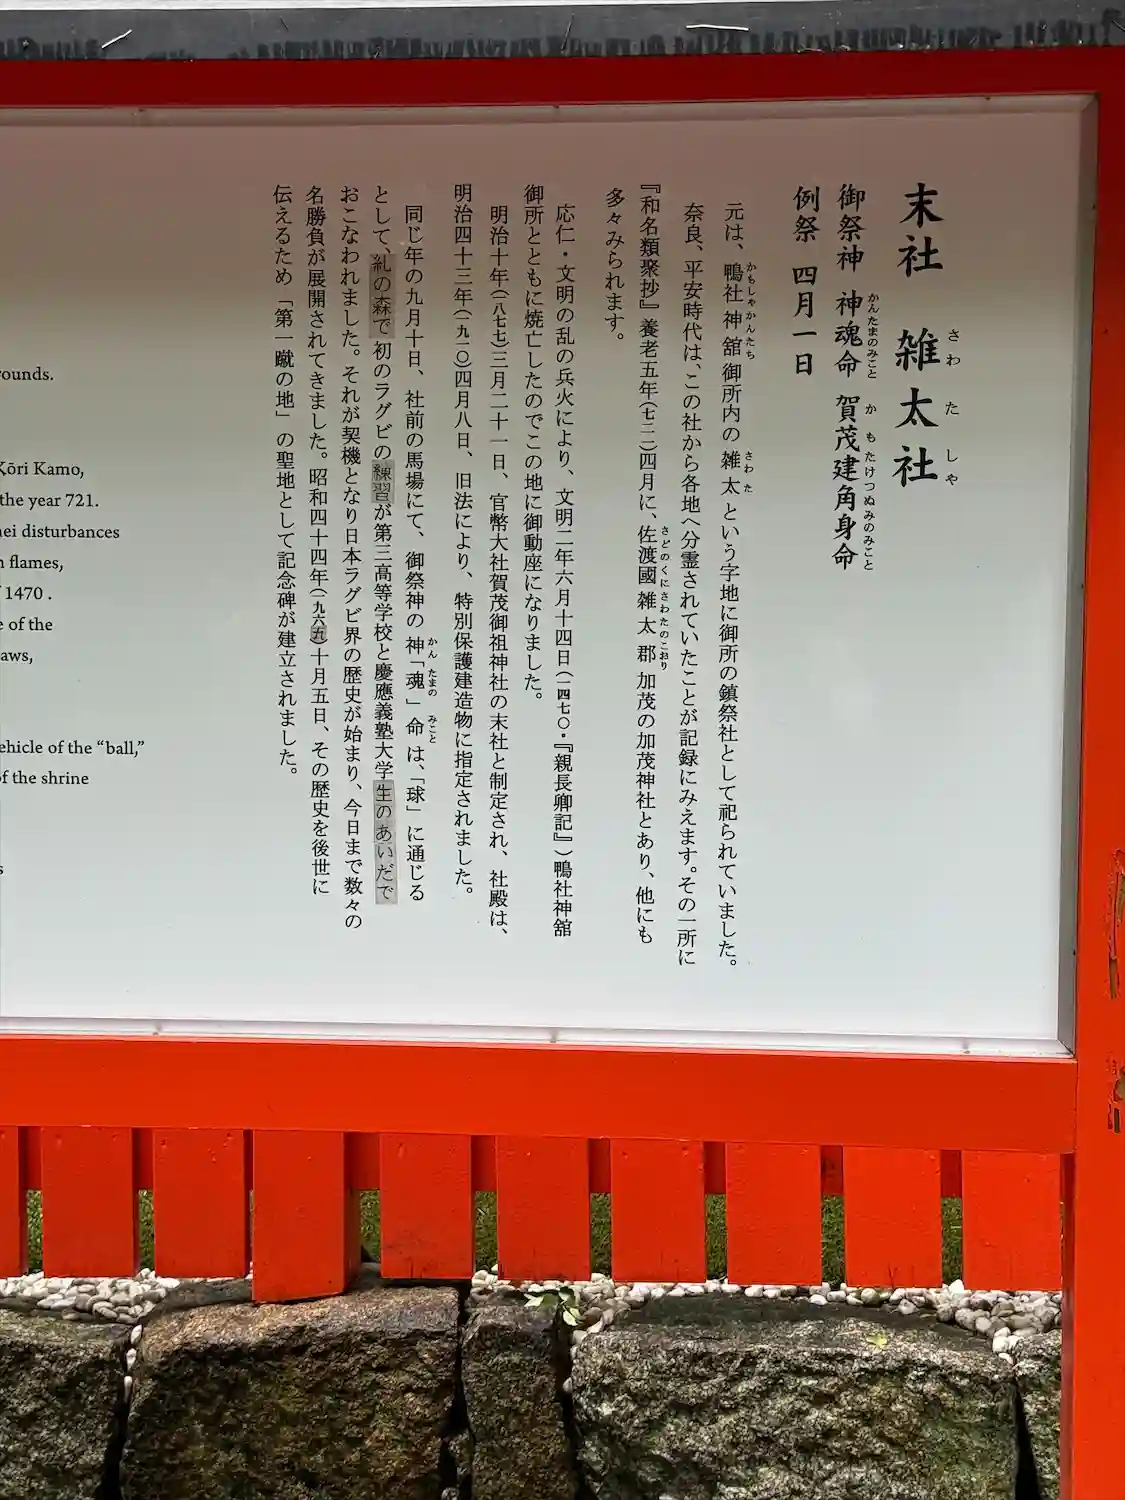 末社 雑太社
さわ た しゃ
御祭神 神魂命 賀茂建角身命
かんたまのみこと か もたけつぬみのみこと
例祭 四月一日
元は、鴨社神舘御所内の雑太という字地に御所の鎮祭社として祀られていました。
かもしゃかんたち さわ た
奈良、平安時代は、この社から各地へ分霊されていたことが記録にみえます。その一所に
『和名類聚抄』養老五年(七二一)四月に、佐渡國雑太郡加茂の加茂神社とあり、他にも
さどのくにさわたのこおり
多々みられます。
応仁・文明の乱の兵火により、文明二年六月十四日(一四七〇・『親長卿記』)鴨社神舘
御所とともに焼亡したのでこの地に御動座になりました。
明治十年(一八七七)三月二十一日、官幣大社賀茂御祖神社の末社と制定され、社殿は、
明治四十三年(一九一〇)四月八日、旧法により、特別保護建造物に指定されました。
同じ年の九月十日、社前の馬場にて、御祭神の神「魂」命は、「球」に通じる
かん たまの みこと
として、糺の森で初のラグビの練習が第三高等学校と慶應義塾大学生のあいだで
おこなわれました。それが契機となり日本ラグビ界の歴史が始まり、今日まで数々の
名勝負が展開されてきました。昭和四十四年(一九六五)十月五日、その歴史を後世に
伝えるため「第一蹴の地」の聖地として記念碑が建立されました。
ounds.
Kōri Kamo,
the year 721.
nei disturbances
n flames,
f 1470 .
e of the
aws,
ehicle of the “ball,”
of the shrine
s